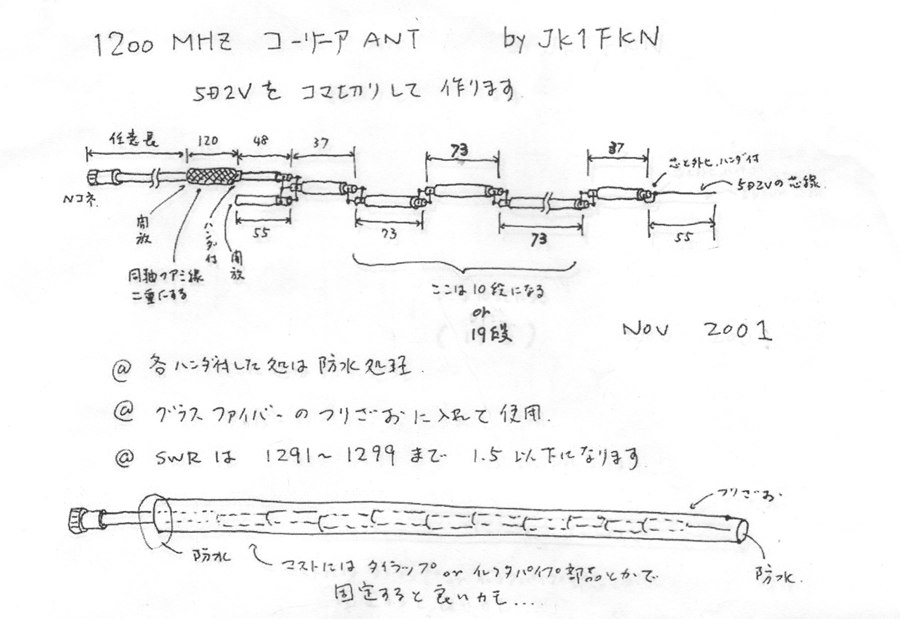 1200 MHZ コーリニア ANT by JK1FKN
5D2Vを コマ切りして 作ります
任意長 120 48 37 73 37
芯と外ヒ、ハンダ付
Nコネ
5D2Vの芯線
開放
ハンダ付
開放
55 73 73 55
同軸のアミ線
二重にする
ここは10段になる
or
19段
NOV 2001
@ 各ハンダ付した処は 防水処理.
@ グラスファイバーの つりざおに入れて 使用.
@ SWR は 1291~1299 まで 1.5 以下になります
つりざお
防水
マストには タイラップ or イレクタパイプ部品とかで
固定すると 良いカモ....
防水.